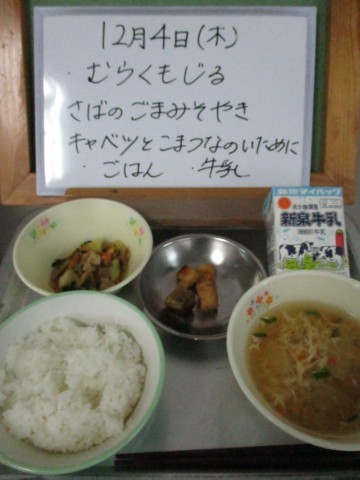 12月4日(木)
・むらくもじる
さばのごまみそやき
キャベツとこまつなのいために
・ごはん ・牛乳
新泉牛乳